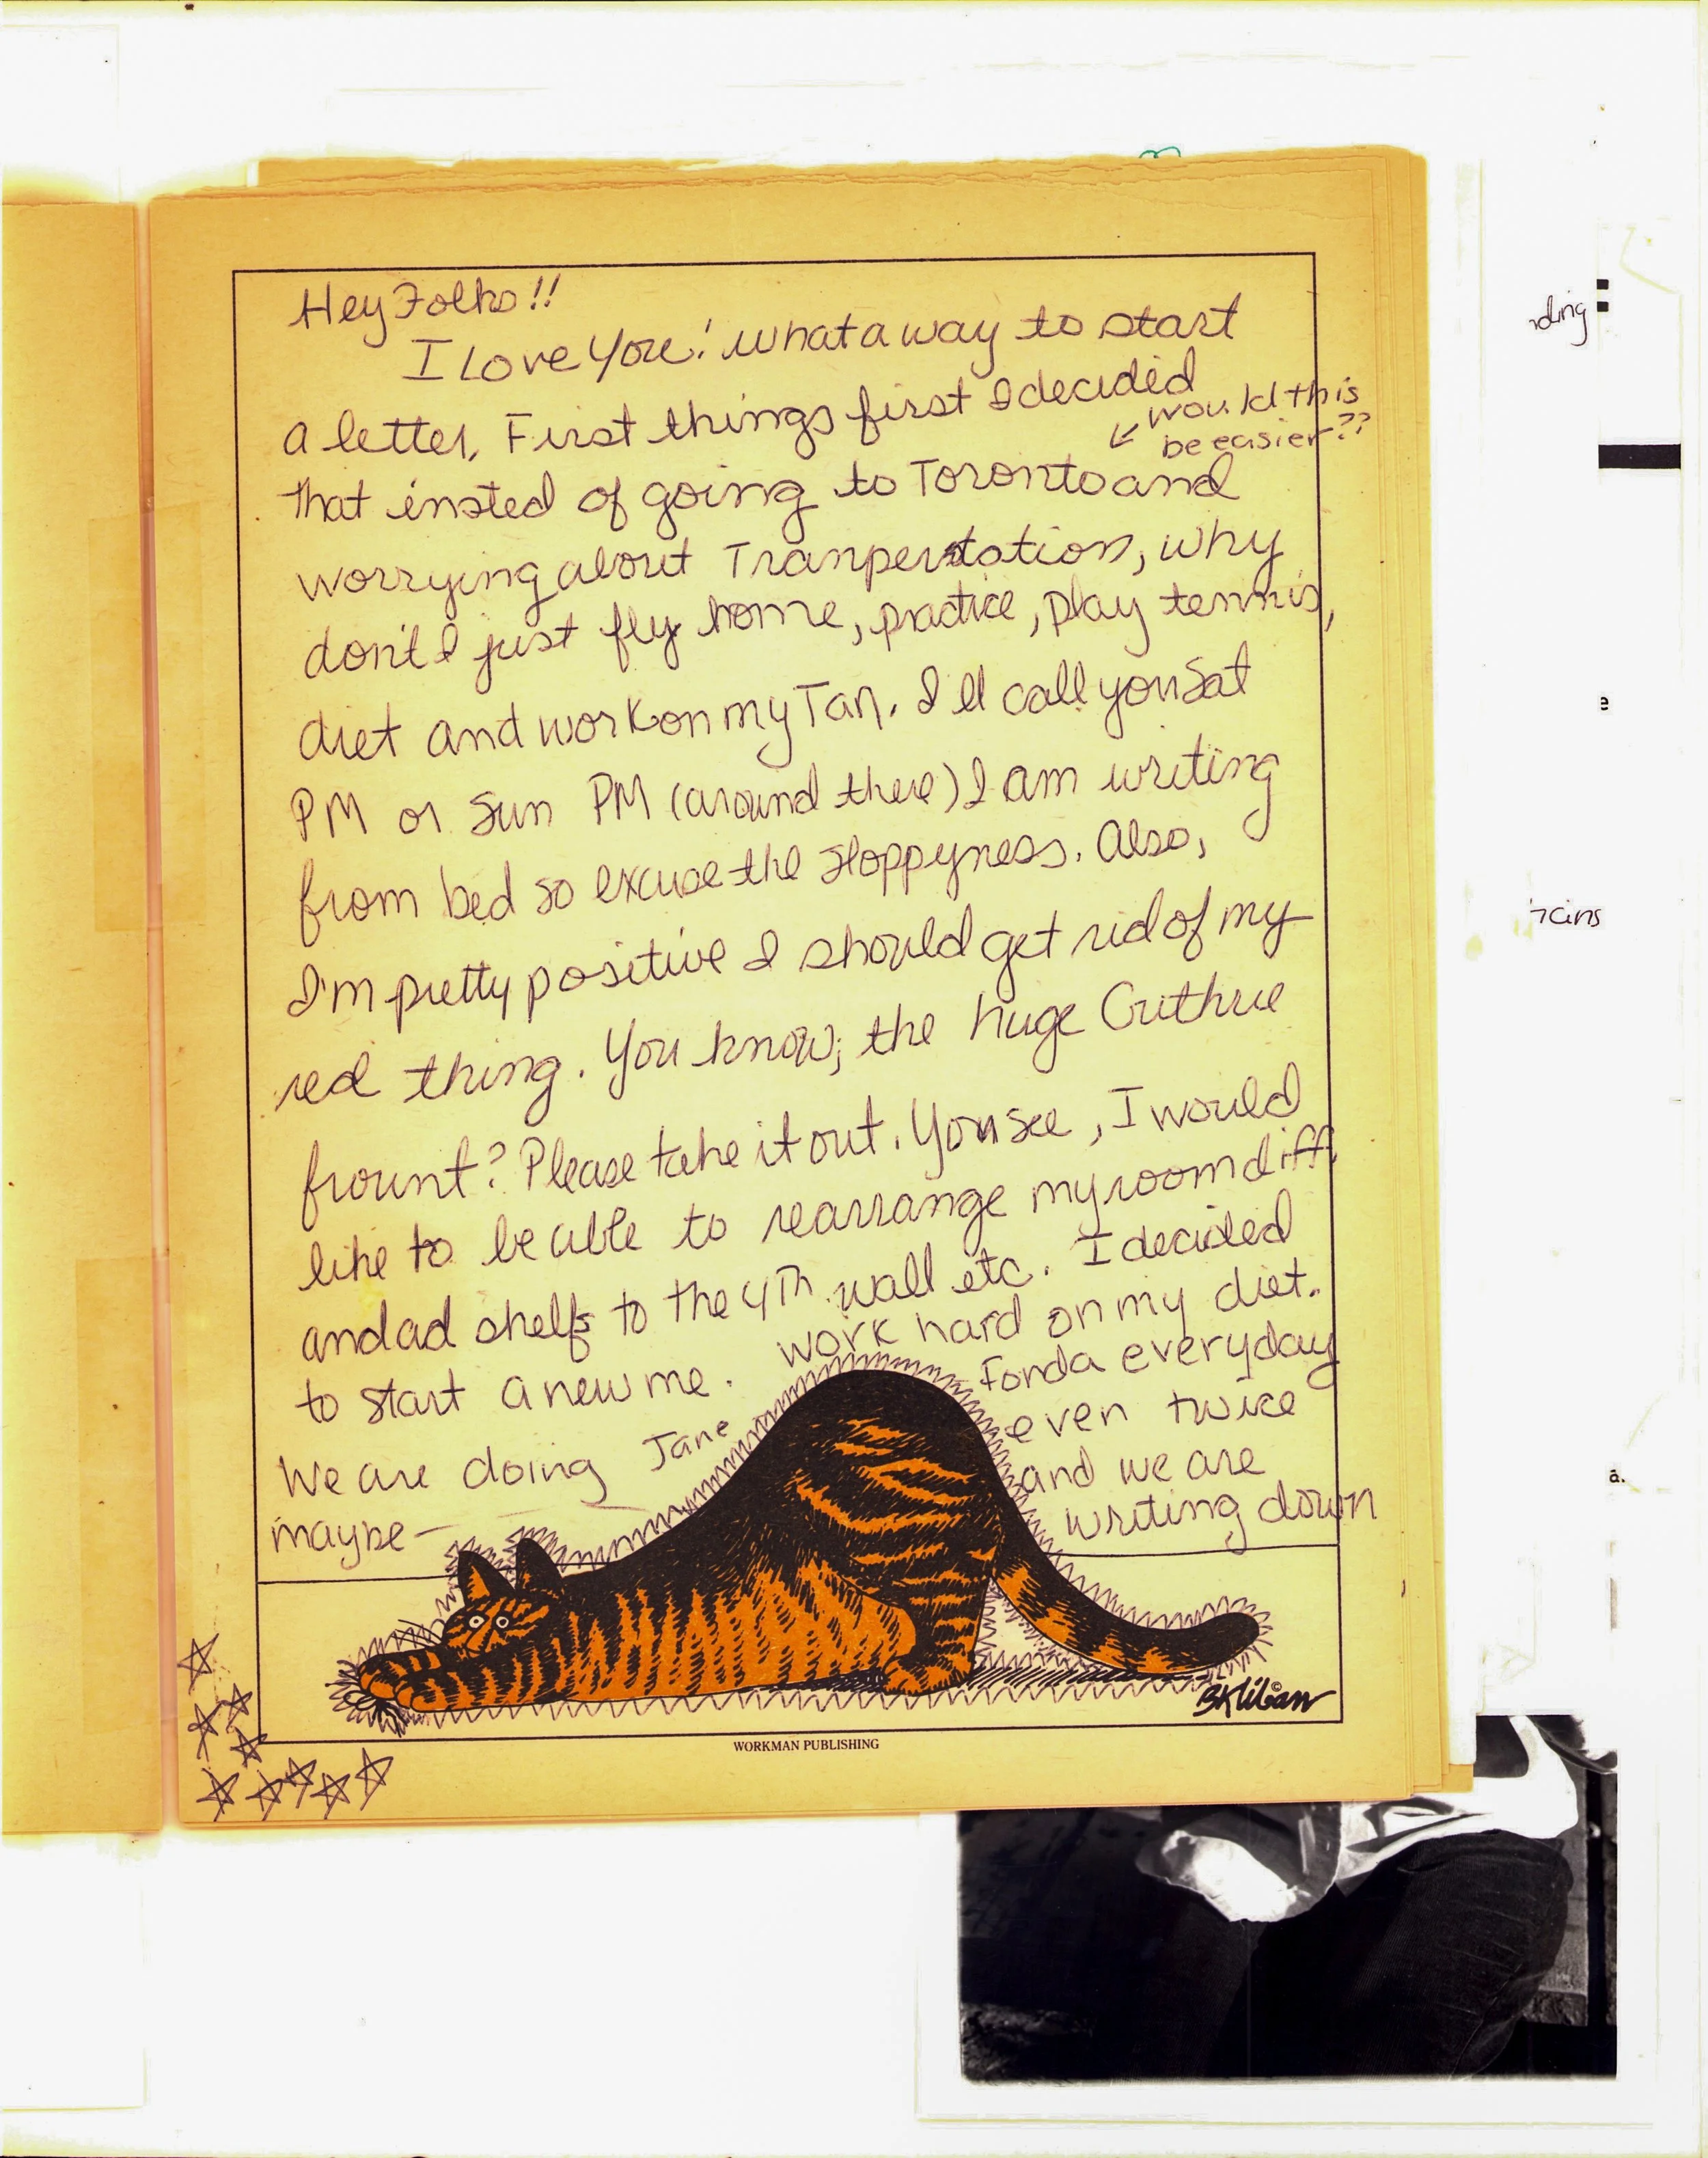 Hey Folks!!
I Love You! what a way to start
a letter, First things first I decided
would this
be easier??
that insted of going to Toronto and
worrying about Tranpertation, why
don't I just fly home, practice, play tennis,
diet and work on my Tan. I'll call you Sat
PM or Sun PM (around there) I am writing
from bed so excuse the sloppyness. Also,
I'm pretty positive I should get rid of my
red thing. You know; the huge Guthrie
frount? Please take it out. You see, I would
like to be able to rearrange my room diff.
and ad shelfs to the 4Th wall etc. I decided
to start a new me. work hard on my diet.
We are doing Jane Fonda everyday
maybe — even twice
and we are
writing down
BKliban ©
WORKMAN PUBLISHING
ding
e
a.